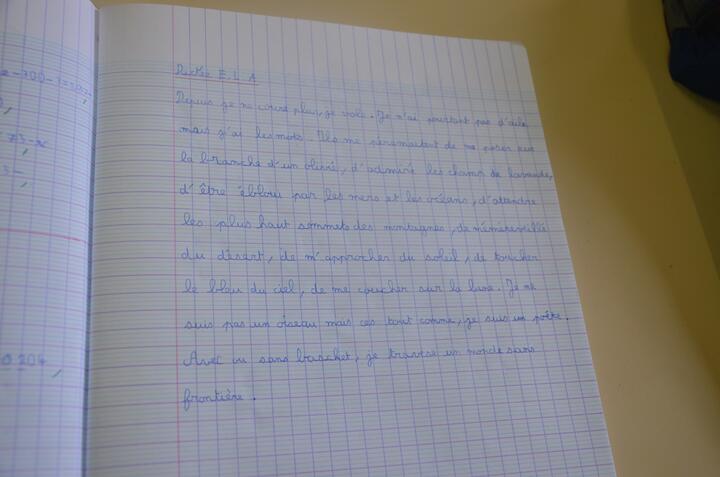 Dictée E.L.A
Depuis je ne coure plus, je vole. Je n'ai pourtant pas d'aile,
mais j'ai les mots. Ils me permettent de me poser sur
la branche d'un olivié, d'admiré les champ de lavande,
d'être ébloui par les mers et les océans, d'attendre
les plus haut sommets des montagnes, de
du désert, de m'approcher du soleil, de toucher
le bleu du ciel, de me coucher sur la lune. Je ne
suis pas un oiseau mais ces tout comme, je suis un poète.
Avec ou sans baschet, je traverse un monde sans
frontière.
73-
0.204